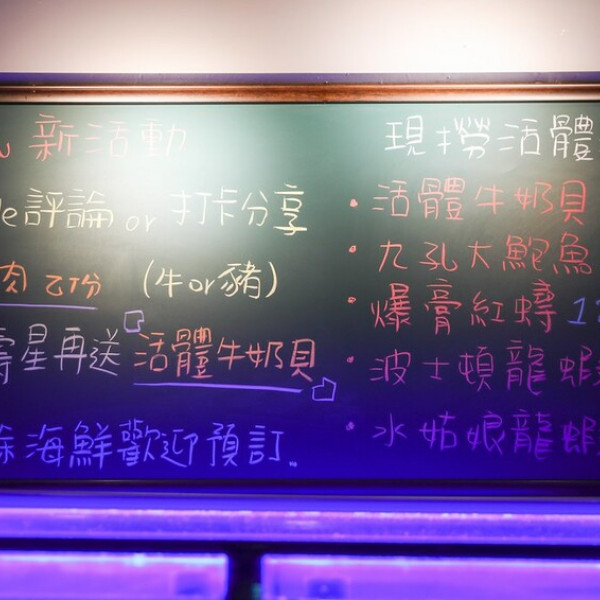 新活動
評論 or 打卡分享
肉乙份 (牛or豬)
壽星再送 活體牛奶貝
海鮮歡迎預訂。
現撈活體
• 活體牛奶貝
• 九孔大鮑魚
• 爆膏紅蟳
• 波士頓龍蝦
• 水姑娘龍蝦